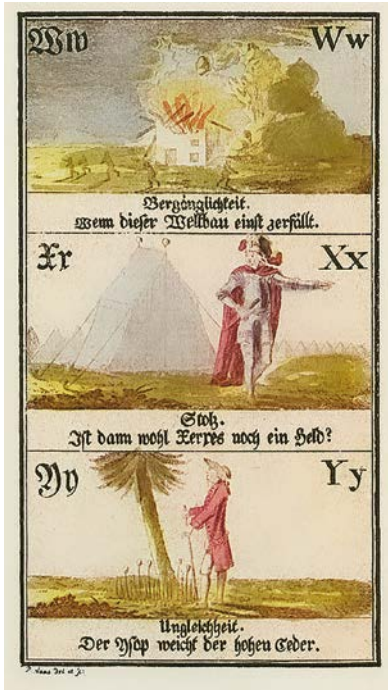 Ww Ww
Vergänglichkeit.
Wenn dieser Weltbau einst zerfällt.
Xx Xx
Stolz.
Ist dann wohl Xerxes noch ein Held?
Yy Yy
Ungleichheit.
Der Ysop weicht der hohen Ceder.